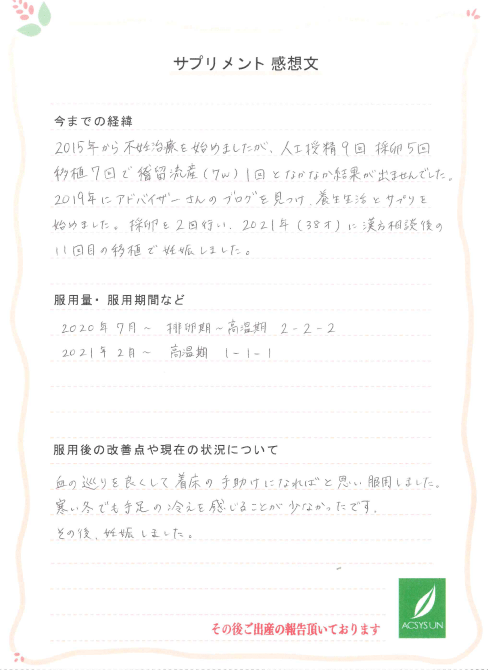 サプリメント 感想文
今までの経緯
2015年から不妊治療を始めましたが、人工授精9回 採卵5回
移植7回で稽留流産(7w)1回となかなか結果が出ませんでした。
2019年にアドバイザーさんのブログを見つけ、養生生活とサプリを
始めました。採卵を2回行い、2021年(38才)に漢方相談後の
11回目の移植で妊娠しました。
服用量・服用期間など
2020年7月〜 排卵期〜高温期 2-2-2
2021年2月〜 高温期 1-1-1
服用後の改善点や現在の状況について
血の巡りを良くして着床の手助けになればと思い服用しました。
寒い冬でも手足の冷えを感じることが少なかったです。
その後、妊娠しました。
ACSYSUN
その後ご出産の報告頂いております